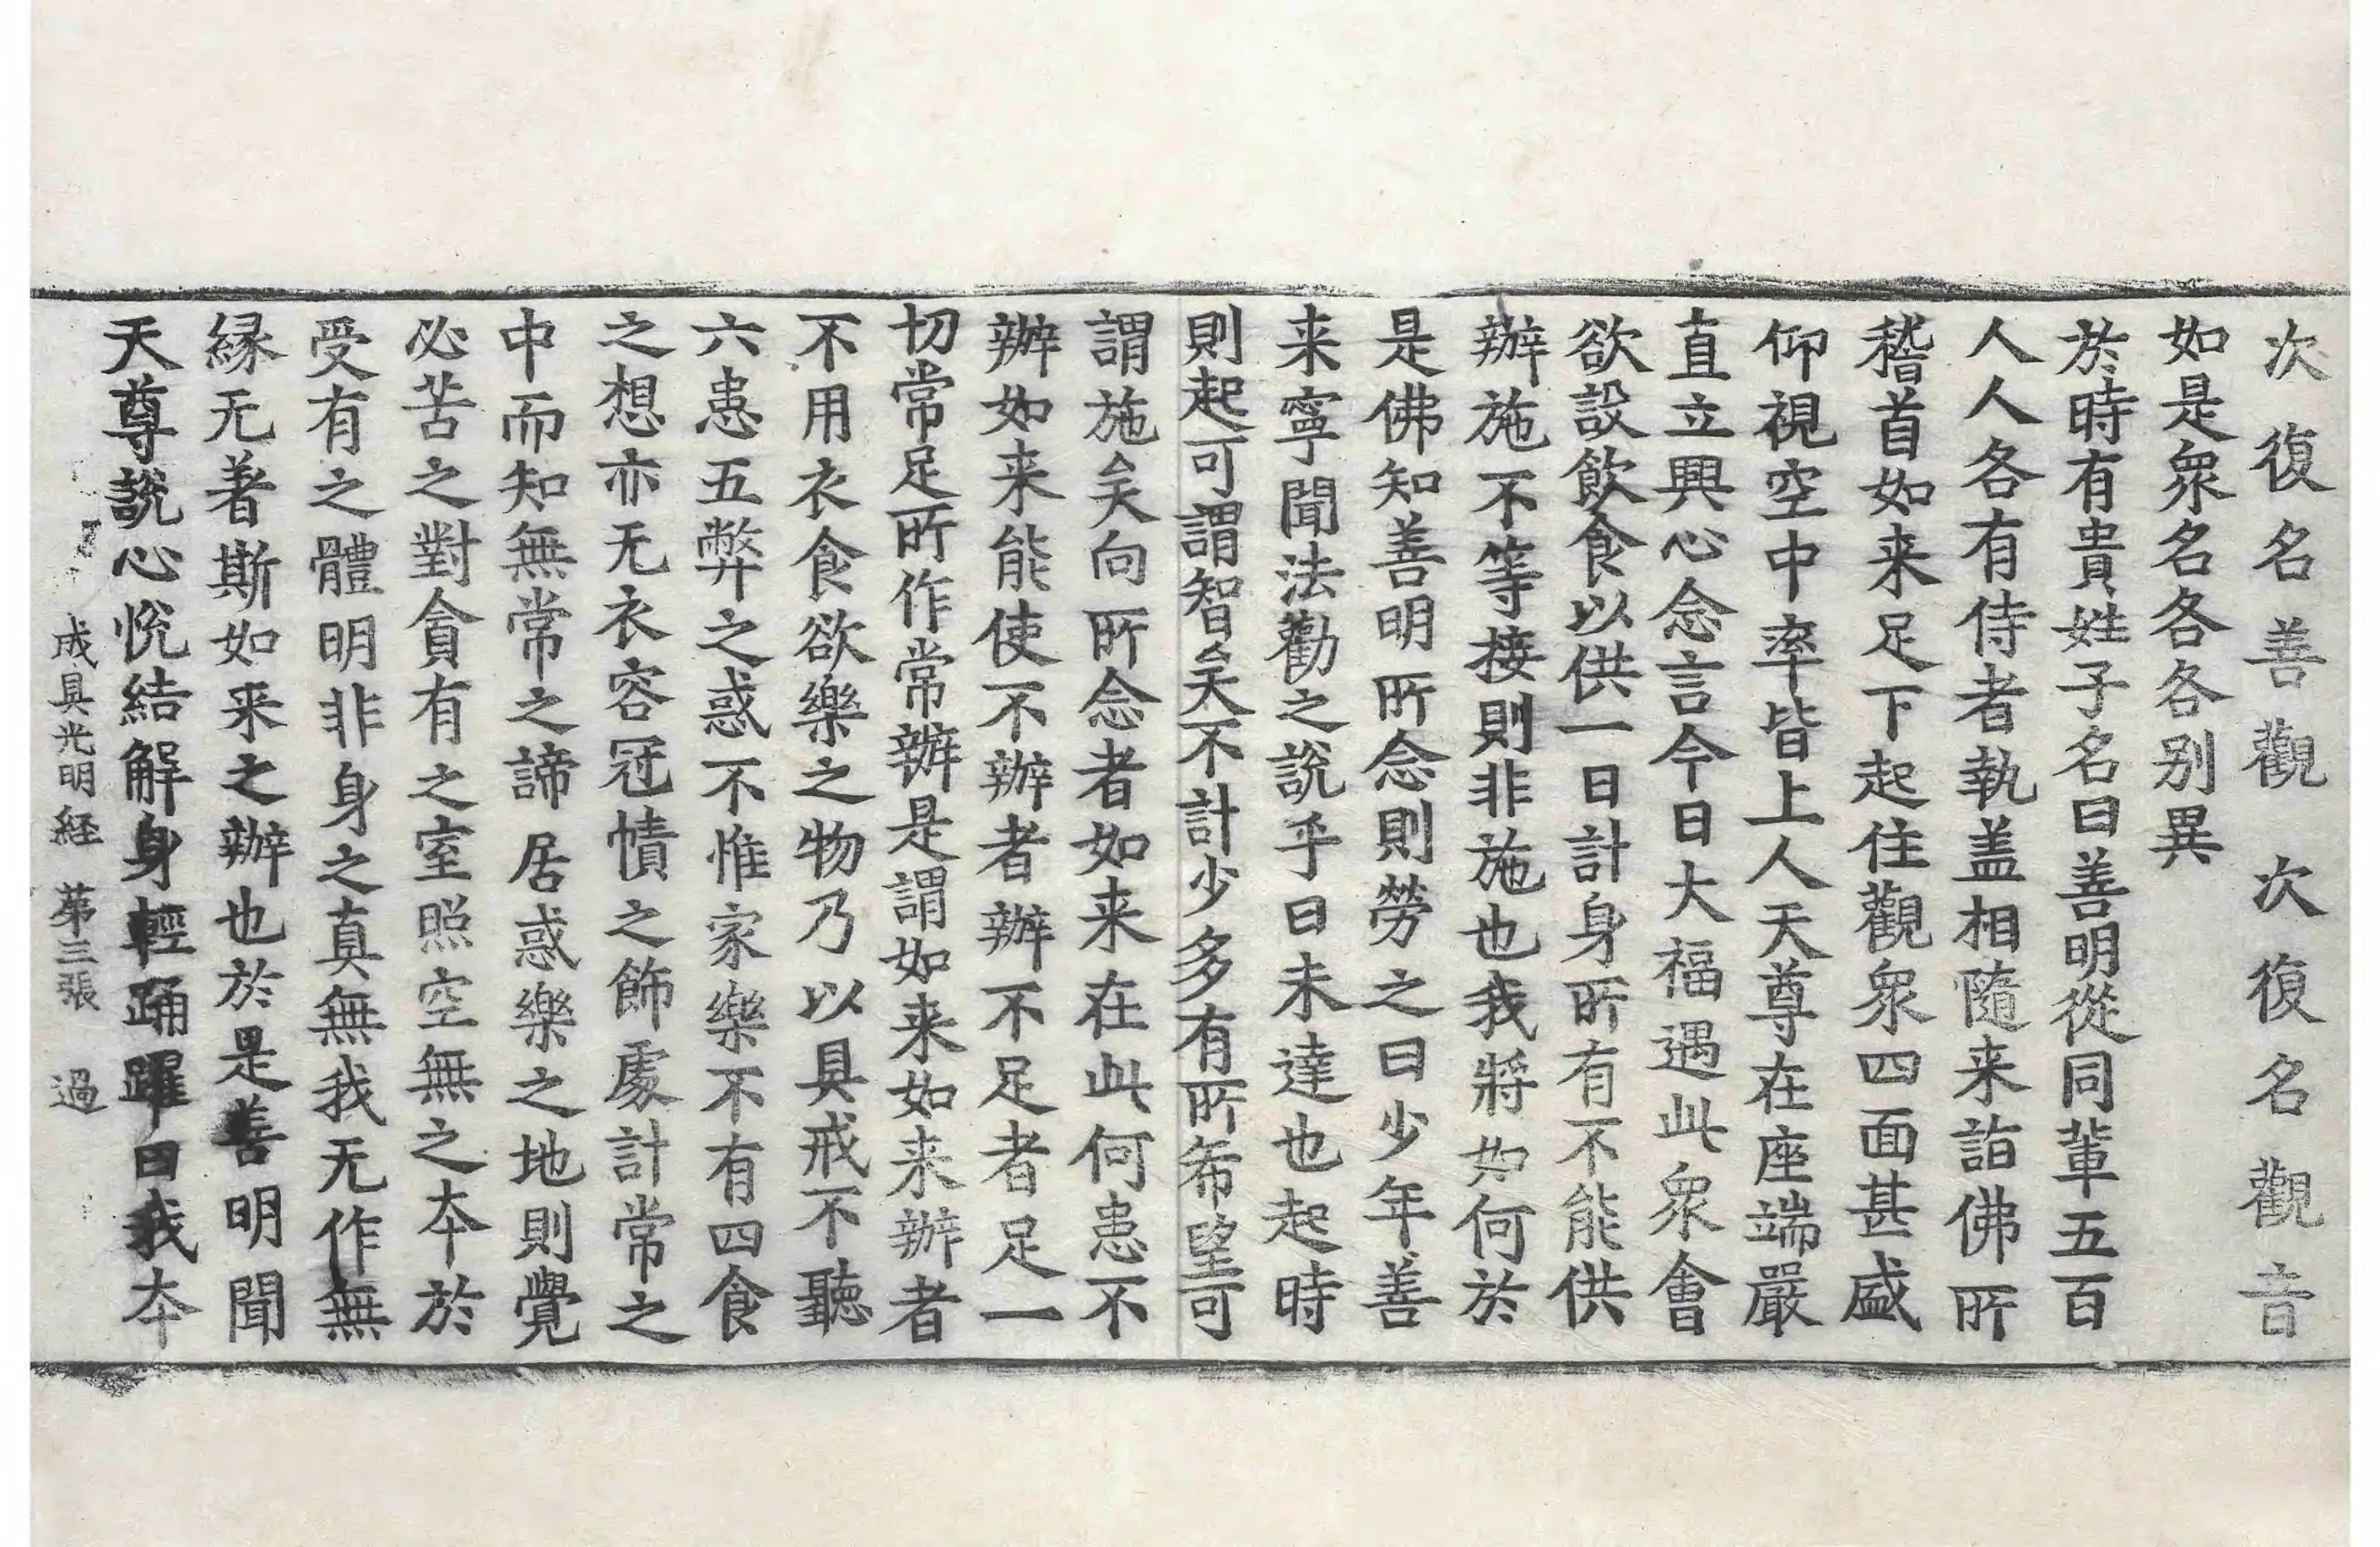 次復名善觀次復名觀音
如是衆名各各别異
於時有貴姓子名曰善明從同輩五百
人人各有侍者執盖相隨来詣佛所
稽首如来足下起住觀衆四面甚盛
仰視空中率皆上人天尊在座端嚴
直立興心念言今日大福遇此衆會
欲設飲食以供一日計身所有不能供
辦施不等接則非施也我將如何於
是佛知善明所念則勞之曰少年善
来寧聞法勸之說乎曰未達也起時
則起可謂智矣不計少多有所希望可
謂施矣向所念者如来在此何患不
辦如来能使不辦者辦不足者足一
切常足所作常辦是謂如来如来辦者
不用衣食欲樂之物乃以具戒不聽
六患五弊之惑不惟家樂不有四食
之想亦无衣容冠幘之飾處計常之
中而知無常之諦居惑樂之地則覺
必苦之對貪有之室照空無之本於
受有之體明非身之真無我无作無
縁无著斯如来之辦也於是善明聞
天尊說心悅結解身輕踊躍曰我本
成具光明経　苐三張　過